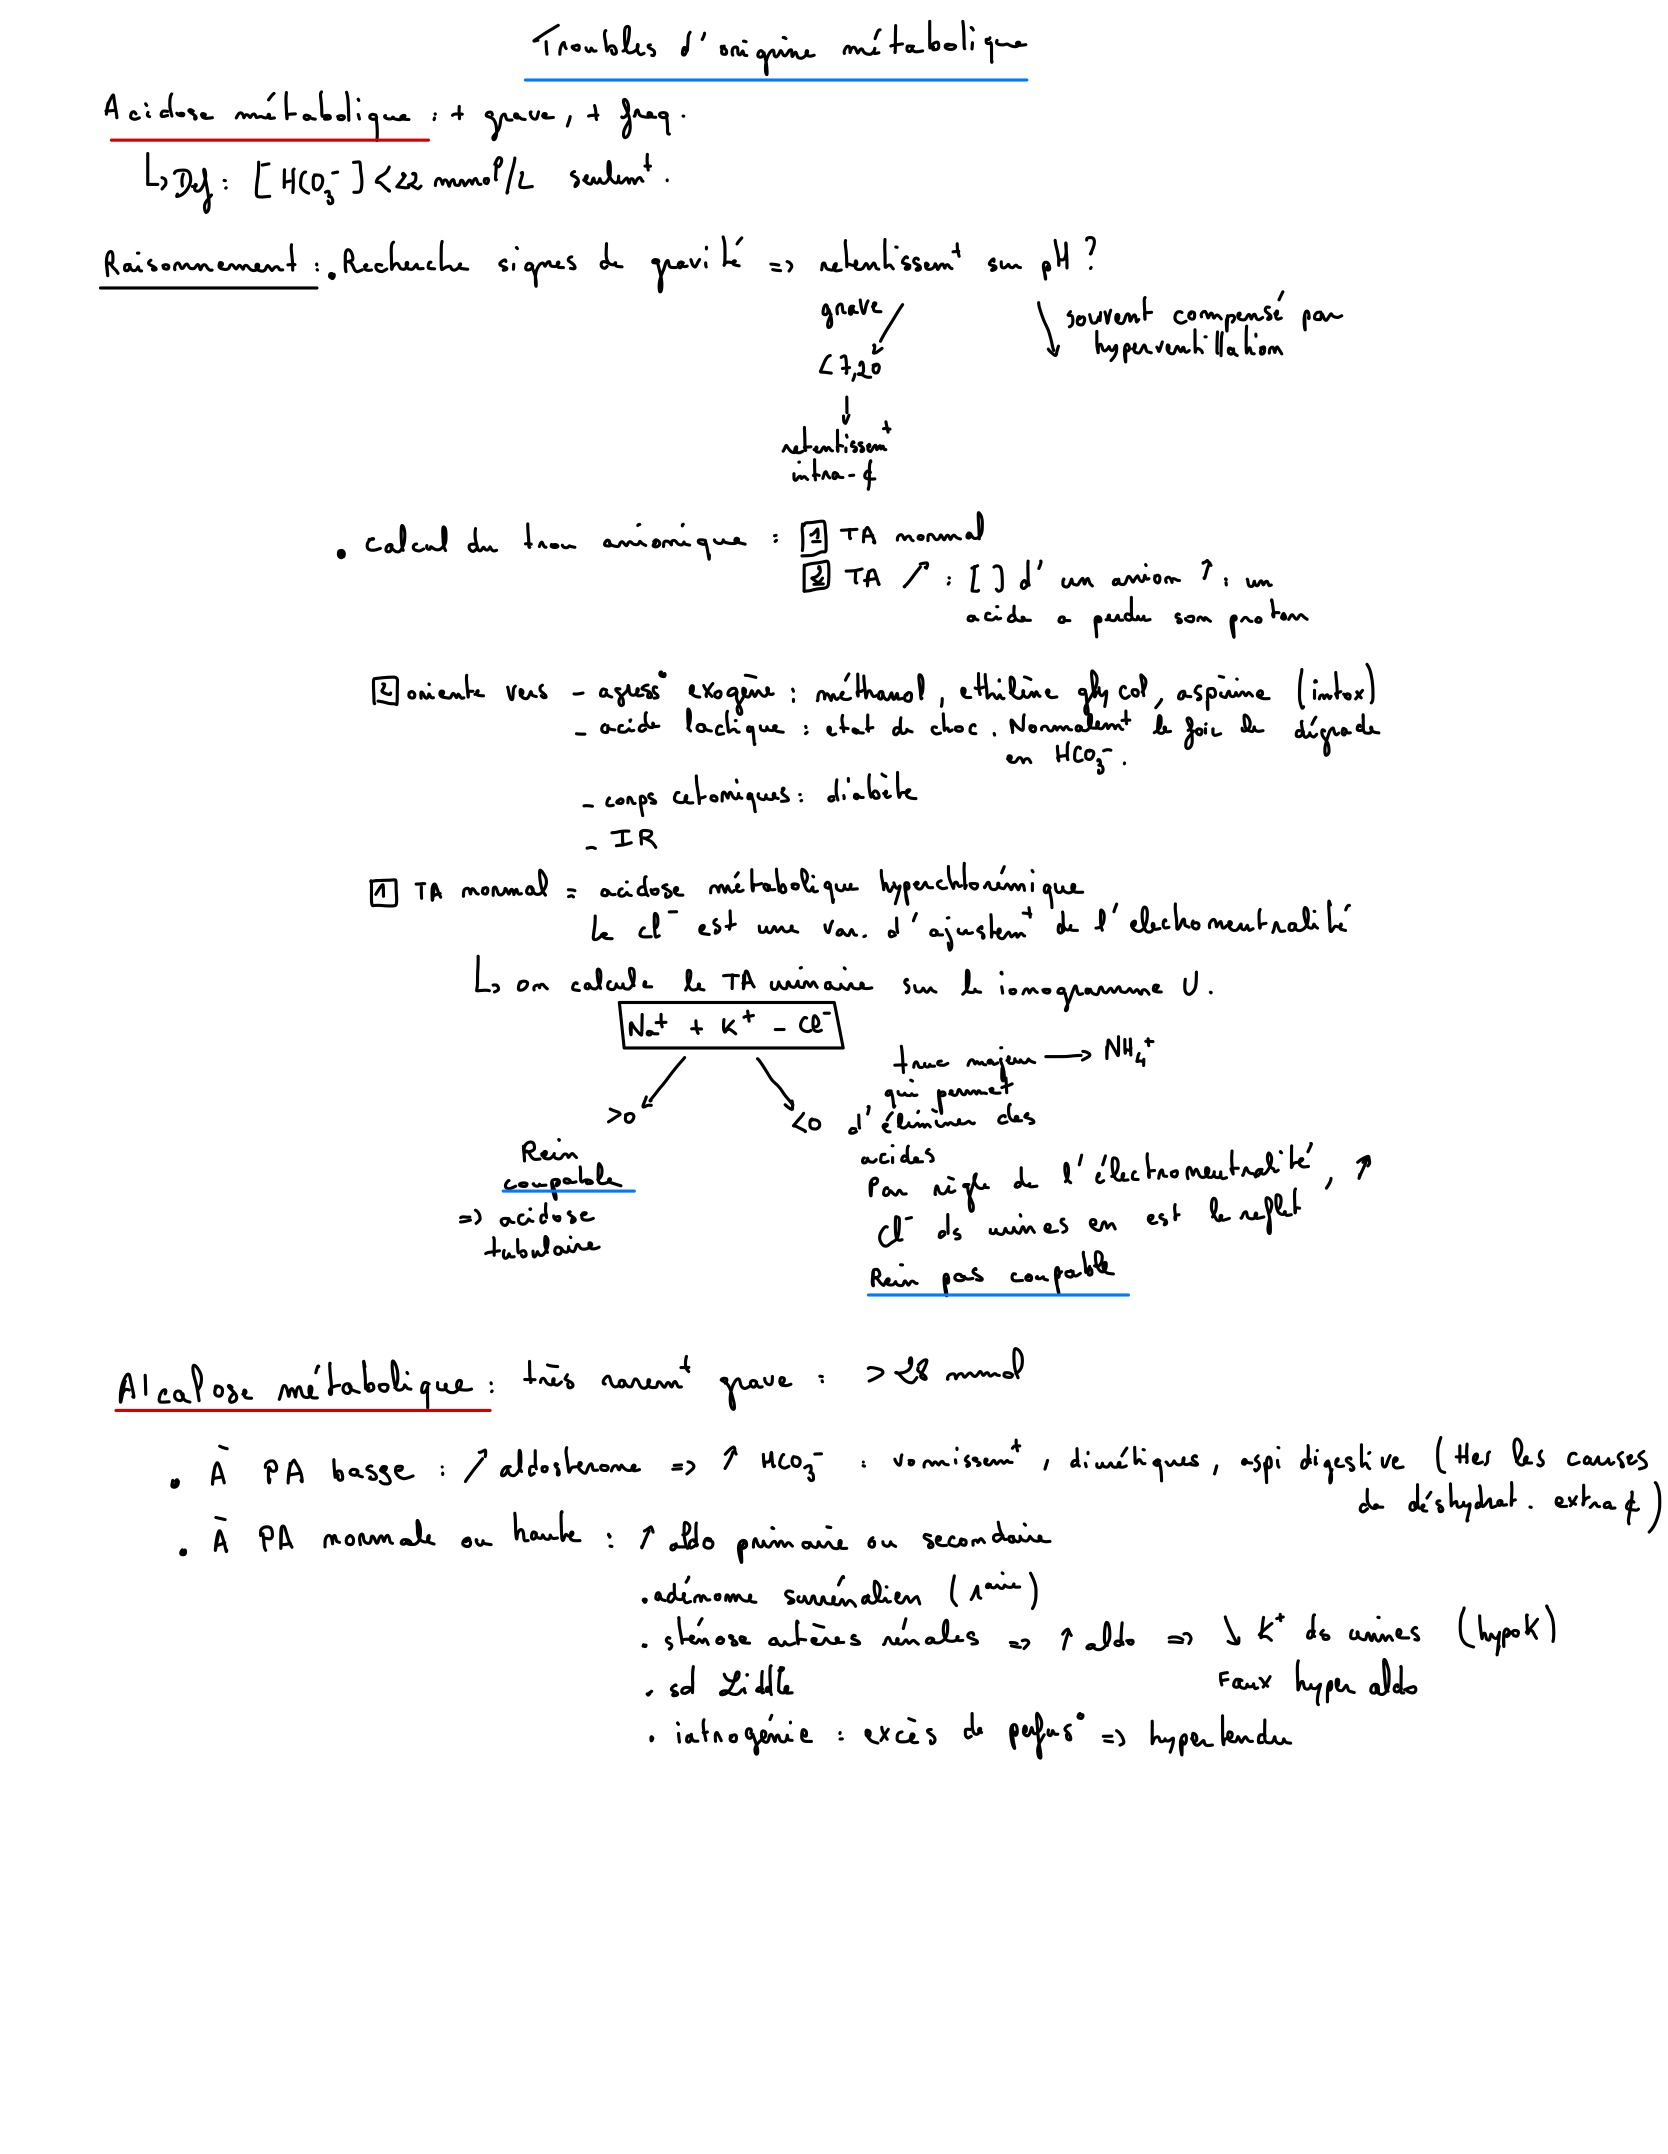 Troubles d'origine métabolique
Acidose métabolique : + grave, + freq.
↳ Def : [HCO₃⁻] < 22 mmol/L seulem^t.
Raisonnement : . Recherche signes de gravité => retentissem^t sur pH ?
grave
souvent compensé par
hyperventillation
< 7,20
retentissem^t
intra-¢
. calcul du trou anionique : 1 TA normal
2 TA ↗ : [ ] d'un anion ↑ : un
acide a perdu son proton
2 oriente vers - agress° exogène : méthanol, ethilène glycol, aspirine (intox)
- acide lactique : etat de choc. Normalem^t le foie le dégrade
en HCO₃⁻.
- corps cetoniques : diabète
- IR
1 TA normal = acidose métabolique hyperchlorémique
Le Cl⁻ est une var. d'ajustem^t de l'electroneutralité
↳ on calcule le TA urinaire sur le ionogramme U.
Na⁺ + K⁺ - Cl⁻
truc majeur → NH₄⁺
qui permet
>0
<0 d'éliminer des
acides
Rein
coupable
=> acidose
tubulaire
Par règle de l'électroneutralité, ↗
Cl⁻ ds urines en est le reflet
Rein pas coupable
Alcalose métabolique : très rarem^t grave : > 28 mmol
. À PA basse : ↗ aldosterone => ↑ HCO₃⁻ : vomissem^t, diurétiques, aspi digestive (ttes les causes
de déshydrat. extra ¢)
. À PA normale ou haute : ↑ aldo primaire ou secondaire
. adénome surrénalien (1^aire)
. sténose artères rénales => ↑ aldo => ↘ K⁺ ds urines (hypoK)
. sd Liddle Faux hyper aldo
. iatrogénie : excès de perfus° => hypertendu